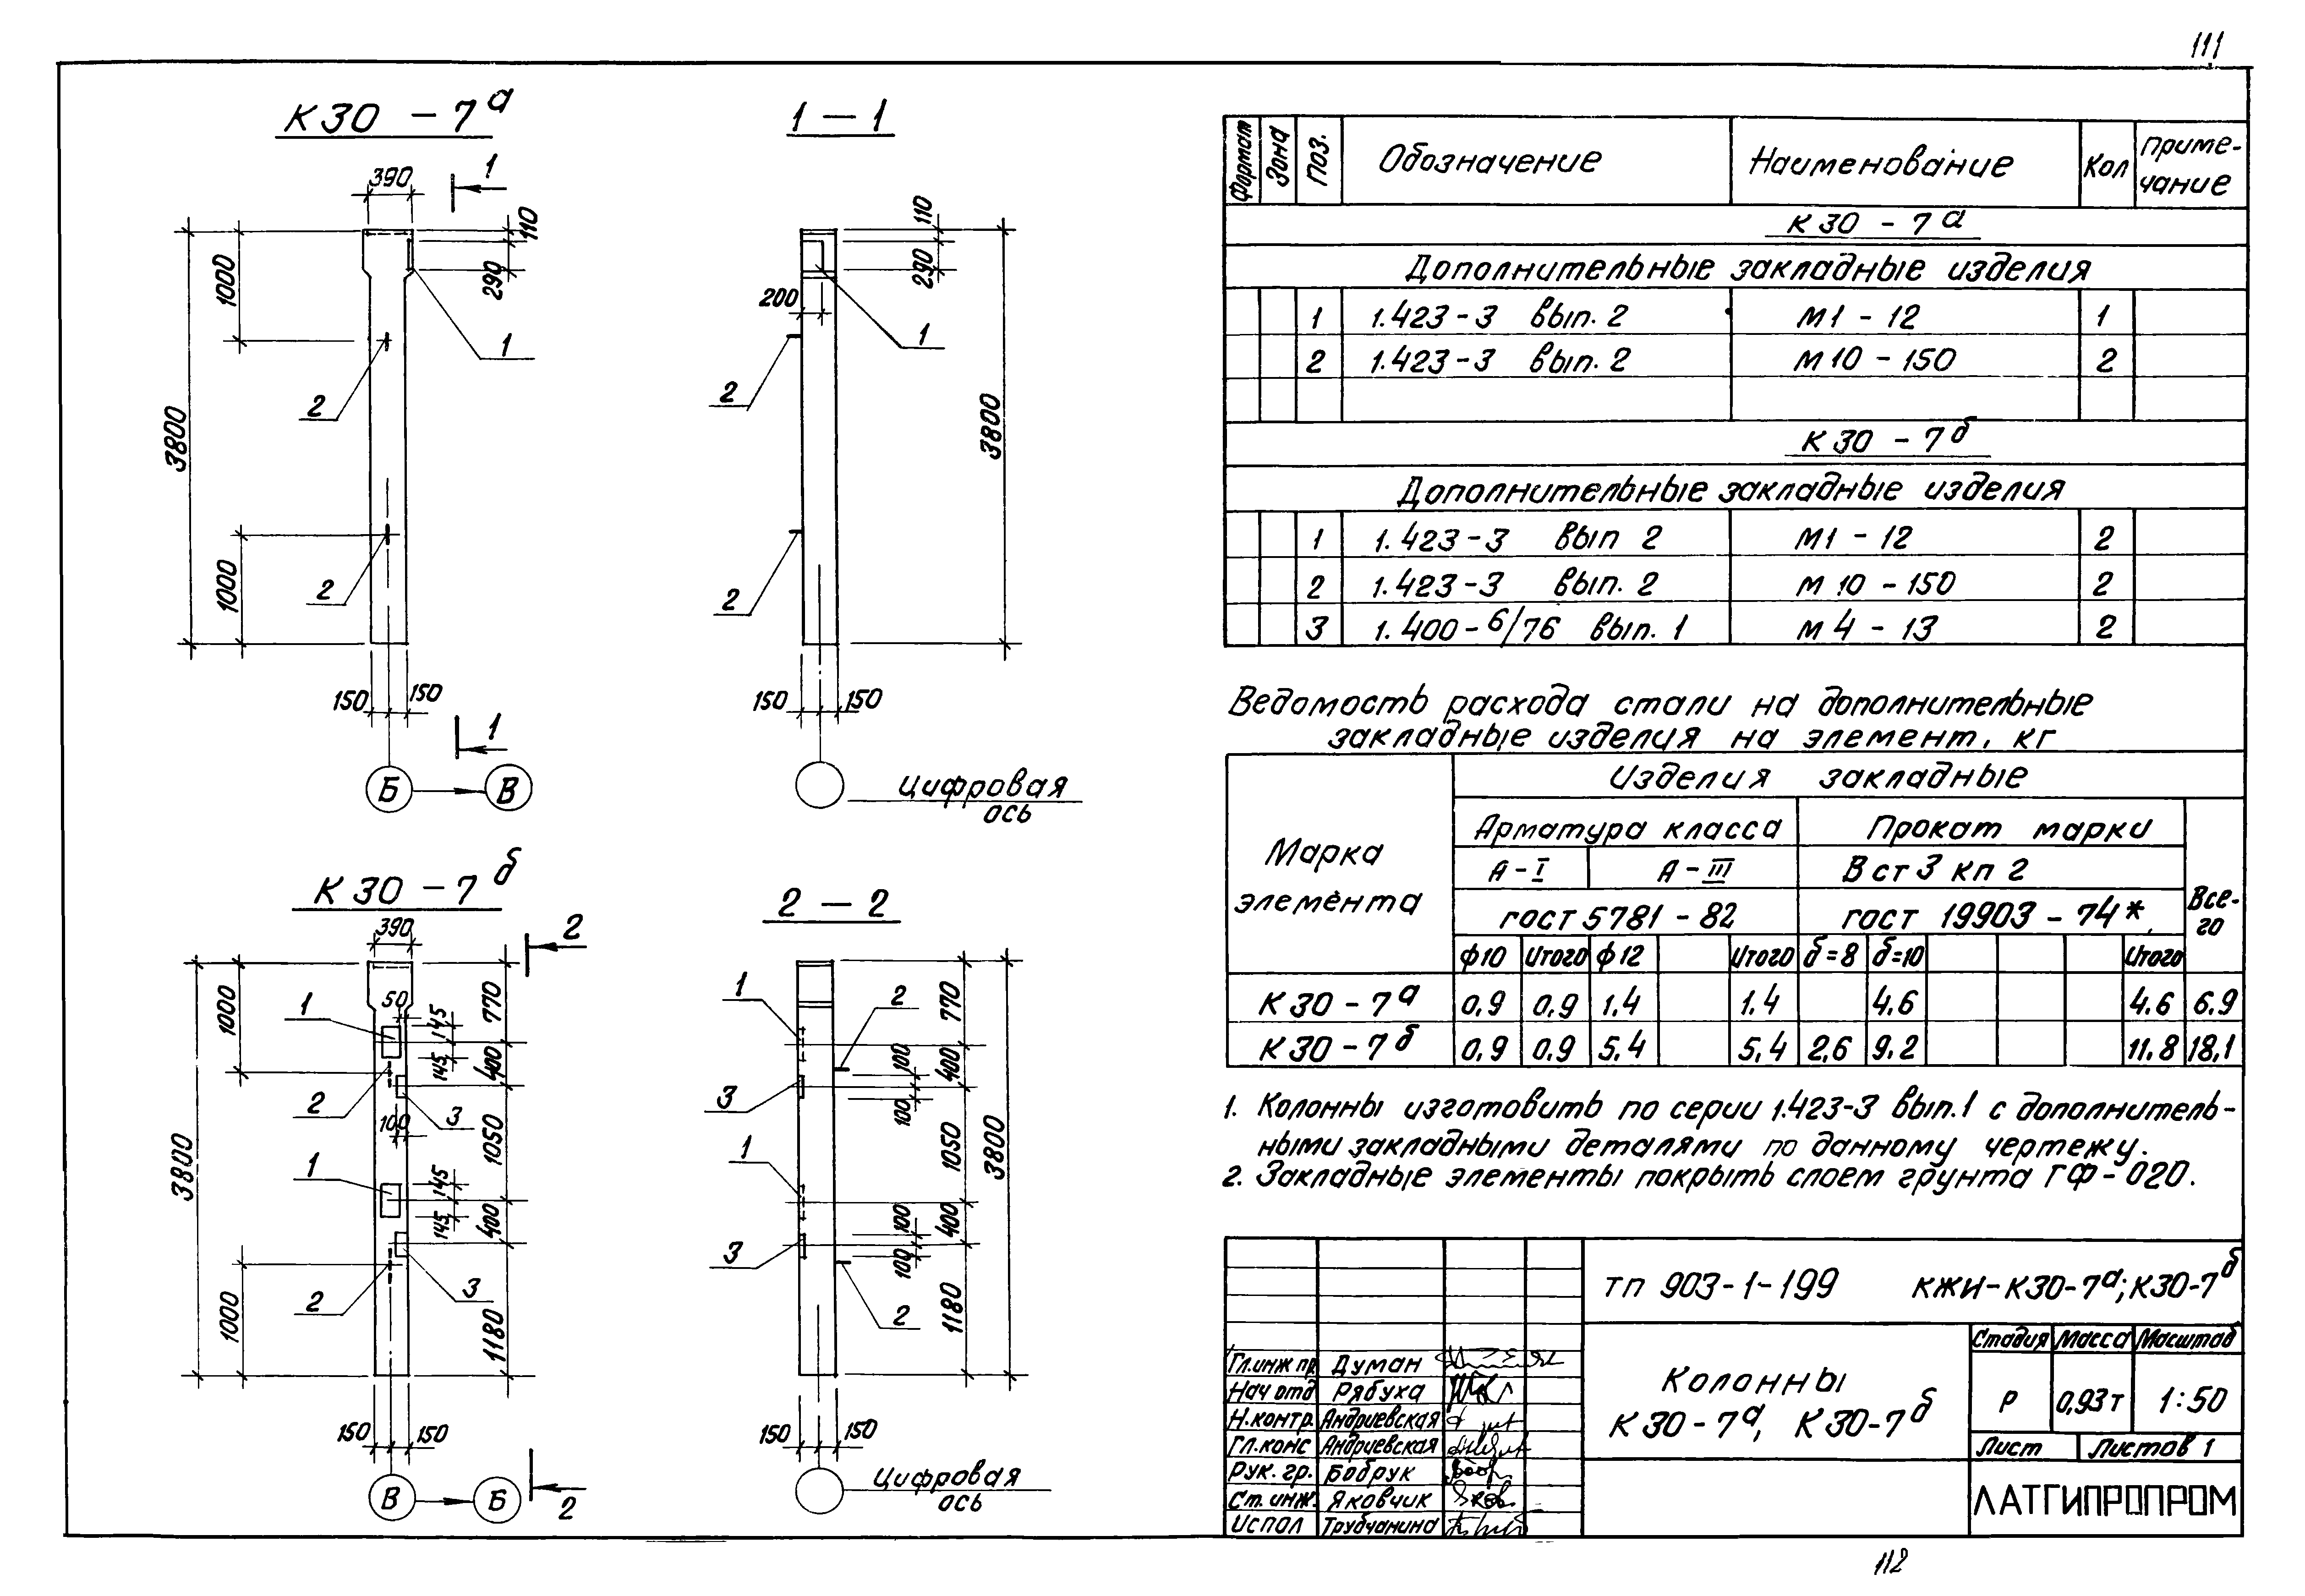 111
К30 - 7а
390
1
110
290
1000
1
2
3800
2
1000
150 150
1
Б В
1 - 1
110
290
200
1
2
3800
2
150 150
Цифровая
ось
К30 - 7б
390
2
1000
50
1
145
770
145
400
2
3
100
3800
1050
1
145
145
400
2
3
1000
1180
150 150
В Б
2
2 - 2
1
2
770
100
400
3
100
1
1050
3800
100
400
3
100
2
1180
150 150
Цифровая
ось
Формат Зона Поз. Обозначение Наименование Кол Приме-
чание
К30 - 7а
Дополнительные закладные изделия
1 1.423-3 вып. 2 М1 - 12 1
2 1.423-3 вып. 2 М10 - 150 2
К30 - 7б
Дополнительные закладные изделия
1 1.423-3 вып 2 М1 - 12 2
2 1.423-3 вып. 2 М10 - 150 2
3 1.400-6/76 вып. 1 М4 - 13 2
Ведомость расхода стали на дополнительные
закладные изделия на элемент, кг
Марка
элемента
Изделия закладные
Арматура класса Прокат марки
А-I А-III В ст 3 кп 2
гост 5781 - 82 гост 19903 - 74*
Все-
го
ф10 Итого ф12 Итого б=8 б=10 Итого
К30 - 7а 0,9 0,9 1,4 1,4 4.6 4.6 6.9
К30 - 7б 0,9 0,9 5,4 5,4 2,6 9.2 11.8 18,1
1. Колонны изготовить по серии 1.423-3 вып.1 с дополнитель-
ными закладными деталями по данному чертежу.
2. Закладные элементы покрыть слоем грунта ГФ-020.
тп 903-1-199 КЖИ-К30-7а; К30-7б
Гл.инж пр. Думан
Нач отд Рябуха
Н.контр. Андриевская
Гл.конс Андриевская
Рук. гр. Бобрук
Ст. инж. Яковчик
Испол Трубчанина
Колонны
К30-7а, К30-7б
Стадия Масса Масштаб
Р 0,93т 1:50
Лист Листов 1
ЛАТГИПРОПРОМ
112